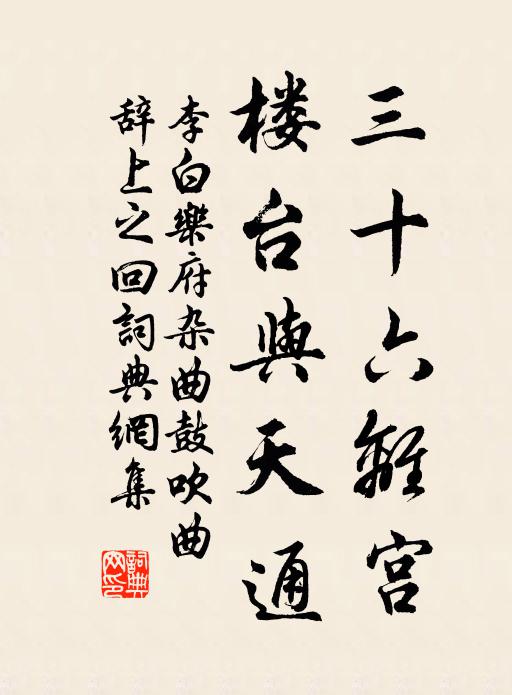 三十六離宮
楼台與天通
李白樂府杂曲鼓吹曲
辞上之回詞典網集
詞典网印